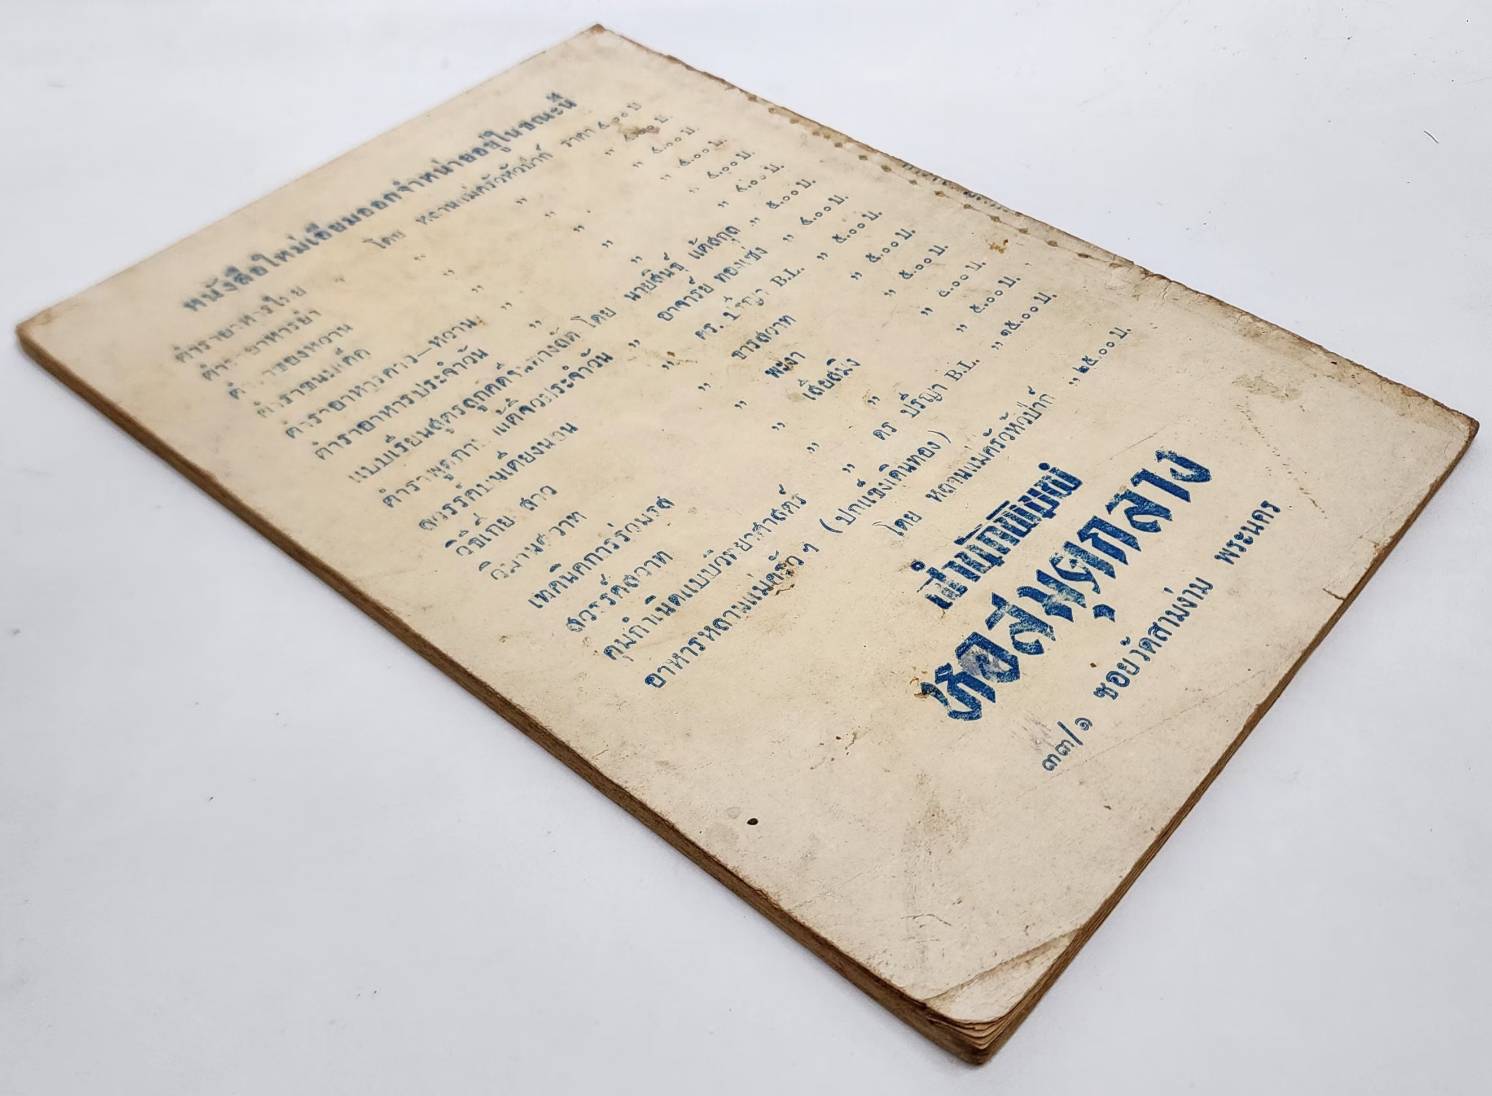 หนังสือใหม่เอี่ยมออกจำหน่ายอยู่ในขณะนี้
ตำรายา โดย หลานแม่ครัวหัวป่าก์ ราคา ๕.๐๐ บ.
ตำราอาหารยำ " " " ๕.๐๐ บ.
ตำราของหวาน " " " ๕.๐๐ บ.
ตำราขนมเค็ก " " " ๕.๐๐ บ.
ตำราอาหารคาว—หวาน " " " ๕.๐๐ บ.
ตำราอาหารประจำวัน " " " ๕.๐๐ บ.
แบบเรียนสูตรลูกคิด โดย นายสินธุ์ " ๕.๐๐ บ.
ประจำวัน " อาจารย์ ทองแช่ง " ๕.๐๐ บ.
สวรรค์บนเตียงนอน " ดร. ปริญา B.L. " ๕.๐๐ บ.
วิธีเกี้ยวสาว " " ๕.๐๐ บ.
วิมานสวาท " พะงา " ๕.๐๐ บ.
เทคนิคการร่วมรส " " ๕.๐๐ บ.
สวรรค์สวาท " " " ๕.๐๐ บ.
คุมกำเนิดแบบวิทยาศาสตร์ " ดร ปริญา B.L. " ๑๕.๐๐ บ.
อาหารหลานแม่ครัว ฯ (ปกแข็งเดินทอง)
โดย หลานแม่ครัวหัวป่าก์ " ๒๕.๐๐ บ.
สำนักพิมพ์
หอสมุดกลาง
๓๓/๑ ซอยวัดสามง่าม พระนคร